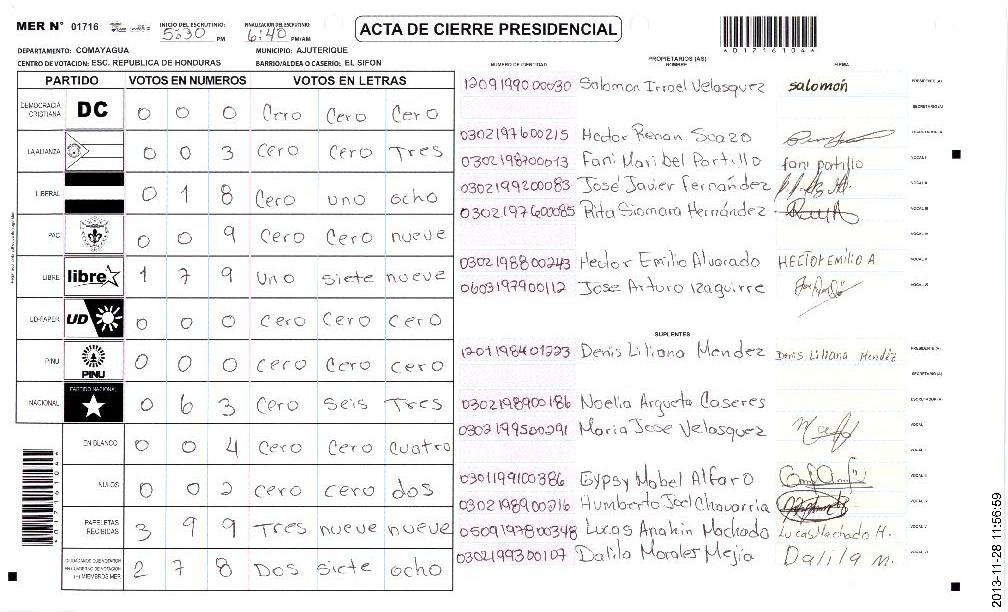 MER N° 01716
INICIO DEL ESCRUTINIO: 5:30 PM
FINALIZACION DEL ESCRUTINIO: 6:40 PM/AM
ACTA DE CIERRE PRESIDENCIAL
DEPARTAMENTO: COMAYAGUA
MUNICIPIO: AJUTERIQUE
CENTRO DE VOTACION: ESC. REPUBLICA DE HONDURAS
BARRIO/ALDEA O CASERIO: EL SIFON
PARTIDO VOTOS EN NUMEROS VOTOS EN LETRAS
DEMOCRACIA CRISTIANA DC 0 0 0 Cero Cero Cero
LA ALIANZA 0 0 3 Cero Cero Tres
LIBERAL 0 1 8 Cero uno ocho
PAC 0 0 9 Cero Cero nueve
LIBRE libre 1 7 9 Uno siete nueve
UD-FAPER UD 0 0 0 Cero Cero Cero
PINU PINU 0 0 0 cero Cero cero
NACIONAL PARTIDO NACIONAL 0 6 3 Cero seis Tres
EN BLANCO 0 0 4 Cero Cero Cuatro
NULOS 0 0 2 cero cero dos
PAPELETAS RECIBIDAS 3 9 9 Tres nueve nueve
2 7 8 Dos siete ocho
PROPIETARIOS (AS)
NUMERO DE IDENTIDAD NOMBRE FIRMA
1209199000030 Salomon Irrael Velasquez salomón PRESIDENTE (A)
SECRETARIO (A)
0302197600215 Hector Renan Suazo
0302198700013 Fani Maribel Portillo fani portillo VOCAL I
0302199200083 José Javier Fernández VOCAL II
0302197600085 Rita Siomara Hernández VOCAL III
VOCAL IV
0302198800243 Hector Emilio Alvarado HECTOR EMILIO A VOCAL V
0603197900112 Jose Arturo Izaguirre VOCAL VI
SUPLENTES
1201198401223 Denis Liliana Mendez Denis Liliana Mendez PRESIDENTE (A)
SECRETARIO (A)
0302198900186 Noelia Argueta Caseres ESCRUTADOR (A)
0302199500291 Maria Jose Velasquez VOCAL I
VOCAL II
0301199100386 Gypsy Mabel Alfaro VOCAL III
0302198900216 Humberto Joel Chavarria VOCAL IV
0509197800348 Lucas Anahin Machado Lucas Machado H. VOCAL V
0302199300107 Dalila Morales Mejia Dalila M. VOCAL VI
2013-11-28 11:56:59